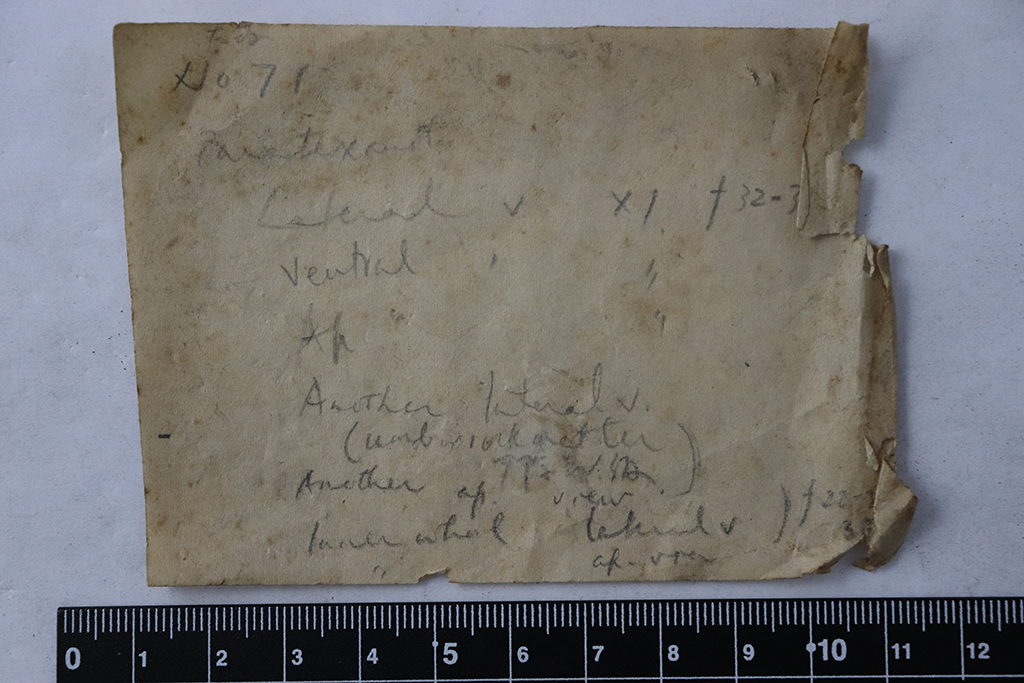 No 71
Lateral v x1 f 32-3
Ventral " "
Ap " "
Another lateral v.
(umb
Another ap. view
Inner whorl lateral v ) f 22-
" ap. view
0 1 2 3 4 5 6 7 8 9 10 11 12